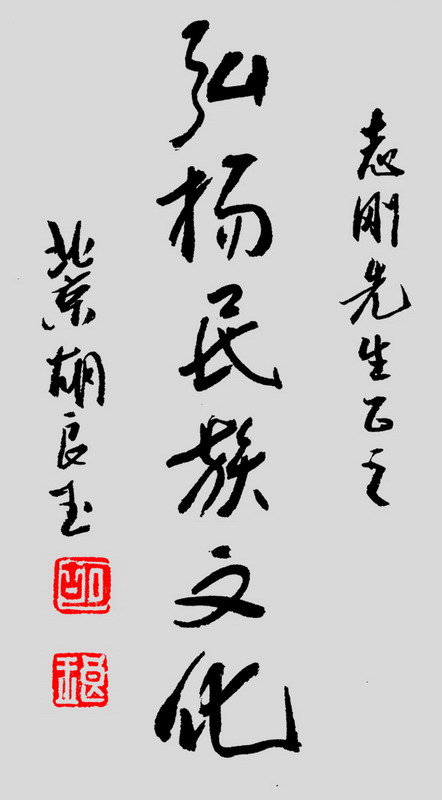 志刚先生正之
弘扬民族文化
北京胡良玉
胡